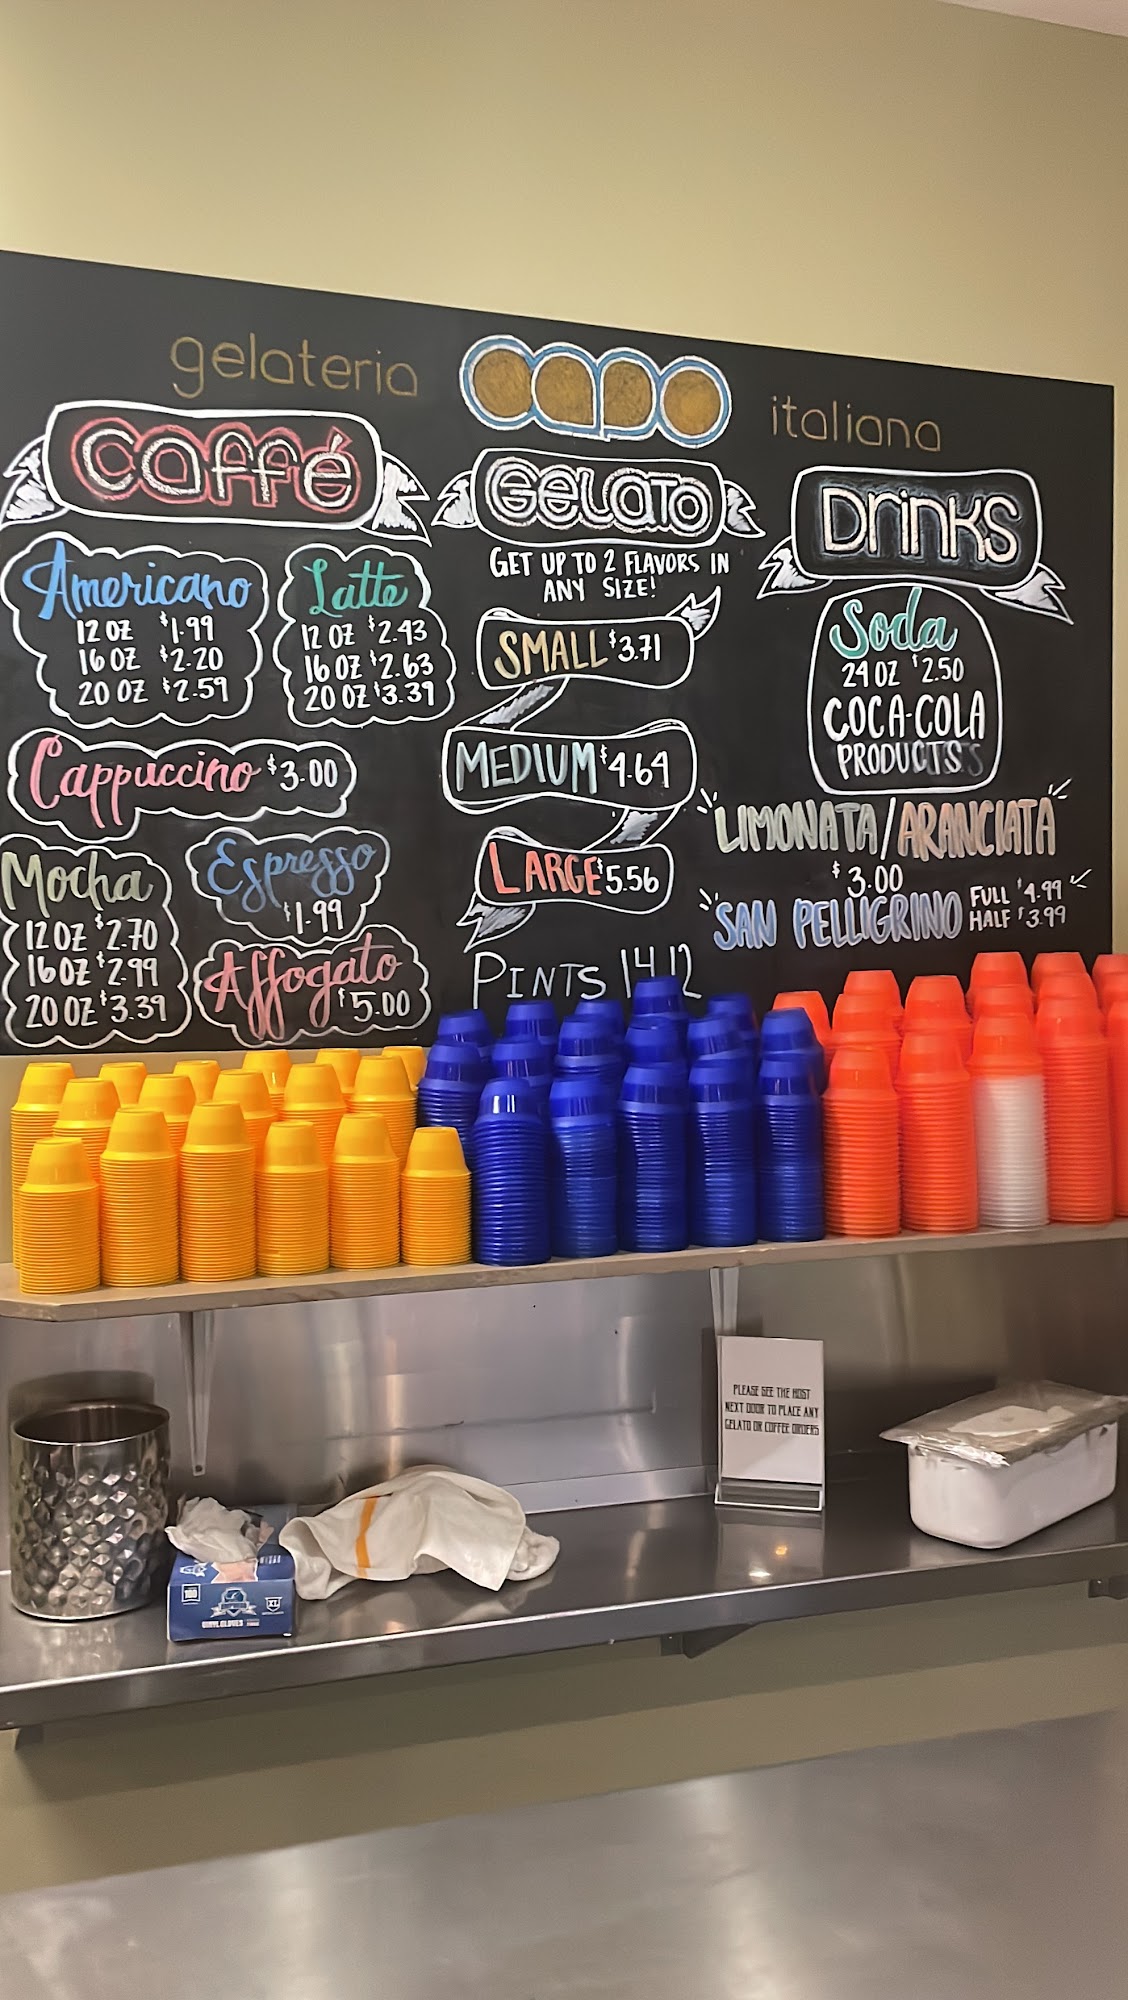 gelateria
capo
italiana
caffé
Americano
12 OZ $1.99
16 OZ $2.20
20 OZ $2.59
Latte
12 OZ $2.43
16 OZ $2.63
20 OZ $3.39
Cappuccino $3.00
Mocha
12 OZ $2.70
16 OZ $2.99
20 OZ $3.39
Espresso
$1.99
Affogato
$5.00
GELATO
GET UP TO 2 FLAVORS IN
ANY SIZE!
SMALL $3.71
MEDIUM $4.64
LARGE $5.56
PINTS 14.12
DRINKS
Soda
24 OZ $2.50
COCA-COLA
PRODUCTS
LIMONATA/ARANCIATA
$3.00
SAN PELLIGRINO
FULL $4.99
HALF $3.99
PLEASE SEE THE HOST
NEXT DOOR TO PLACE ANY
GELATO OR COFFEE ORDERS
100
XL
VINYL GLOVES